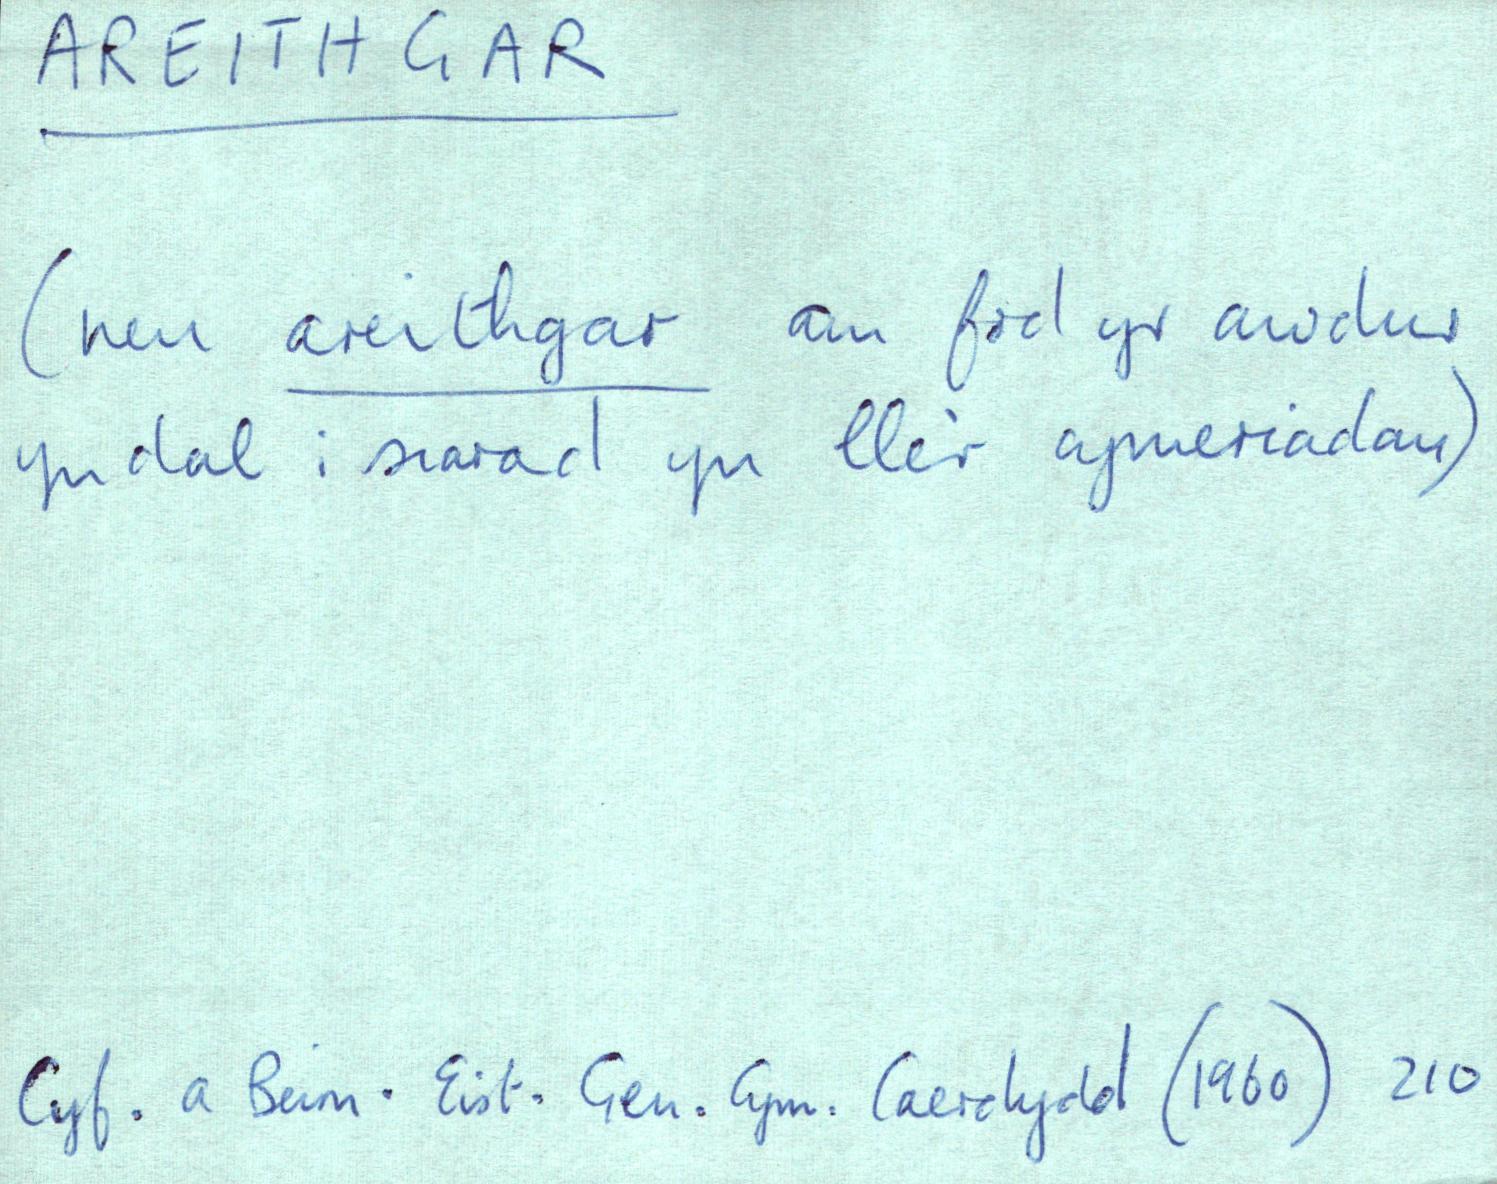 AREITHGAR
(neu areithgar am fod yr awdur
yn dal i siarad yn lle'r cymeriadau)
Cyf. a Beirn. Eist. Gen. Gym. Caerdydd (1960) 210